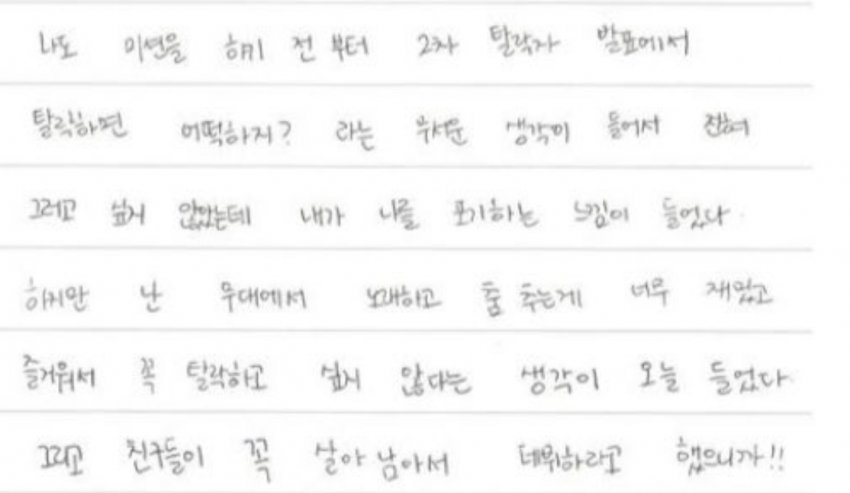 나도 미션을 하기 전 부터 2차 탈락자 발표에서
탈락하면 어떡하지? 라는 무서운 생각이 들어서 전혀
그러고 싶지 않았는데 내가 나를 포기하는 느낌이 들었다.
하지만 난 무대에서 노래하고 춤 추는게 너무 재밌고
즐거워서 꼭 탈락하고 싶지 않다는 생각이 오늘 들었다.
그리고 친구들이 꼭 살아 남아서 데뷔하라고 했으니까!!